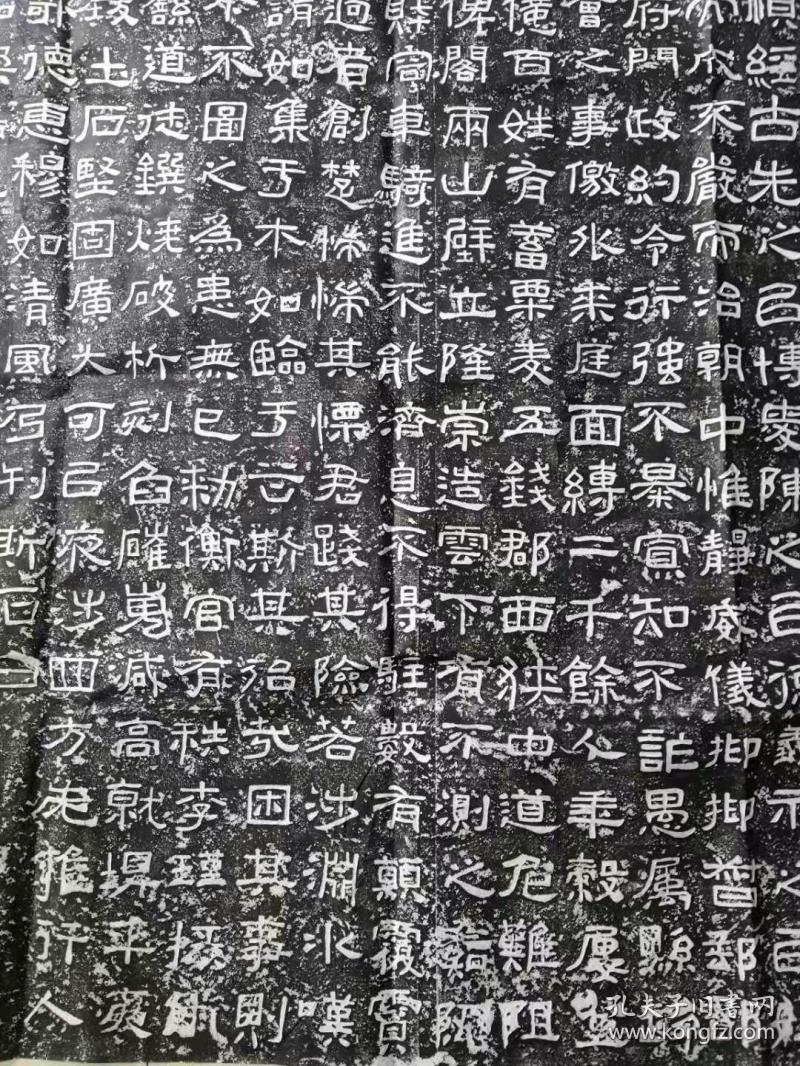 順經古先之以博愛陳之以德義示之以
而成不嚴而治朝中惟靜威儀抑抑督郵部
府門政約令行強不暴寡知不詐愚屬縣
會之事儌外來庭面縛二千餘人年穀屢登
億百姓有蓄粟麥五錢郡西狹中道危難阻
俾閣兩山壁立隆崇造雲下有不測之谿阨
財容車騎進不能濟息不得駐數有顛覆霣
過者創楚惴惴其慄君踐其險若涉淵氷嘆
謂如集于木如臨于谷斯其殆哉困其事則
不圖之為患無已敕衡官有秩李瑾掾仇
繇道徒鐉燒破析刻臽磪嵬減高就埤平夷
致土石堅固廣大可以夜涉四方无雍行人
歌德惠穆如清風乃刊斯石曰
孔夫子旧书网
www.kongfz.com